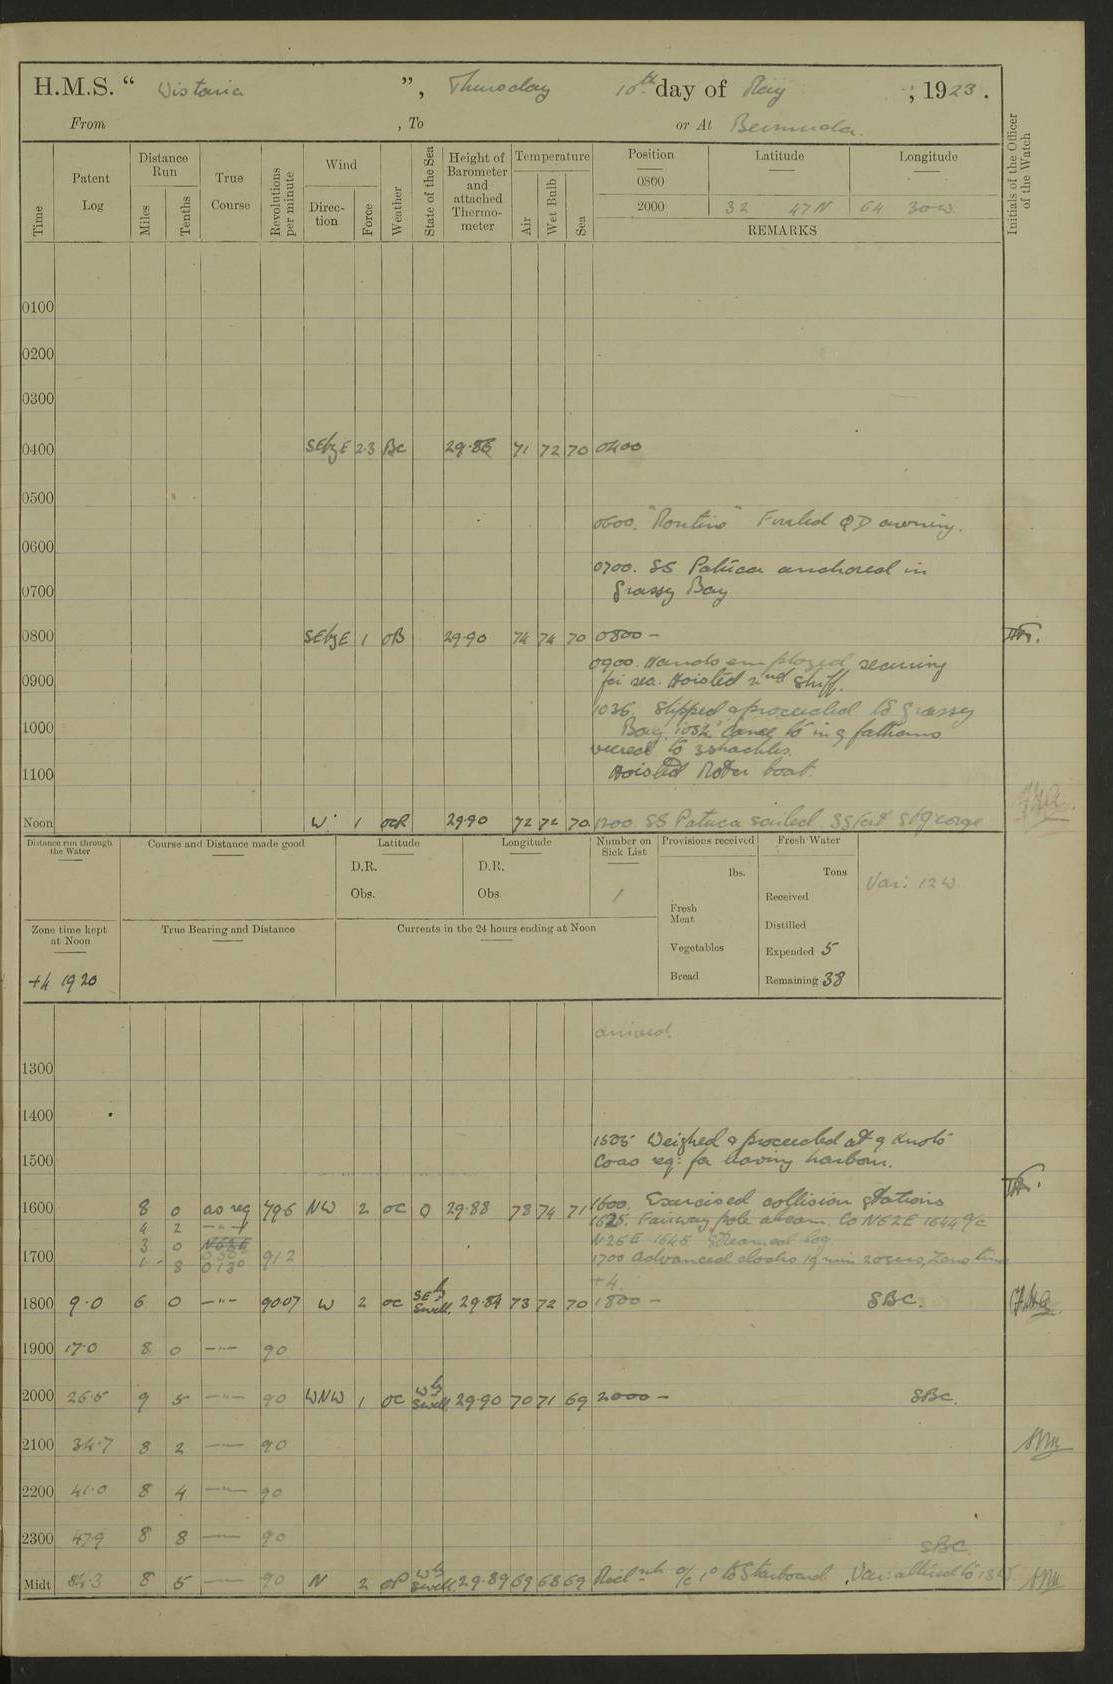 H.M.S. “ Wistaria ”, Thursday 10th day of May ; 1923.
From , To or At Bermuda.
Time
Patent Log
Distance Run
Miles
Tenths
True Course
Revolutions per minute
Wind
Direction
Force
Weather
State of the Sea
Height of Barometer and attached Thermometer
Temperature
Air
Wet Bulb
Sea
Position Latitude Longitude
0800
2000 32 47N 64 30W
REMARKS
Initials of the Officer of the Watch
0100
0200
0300
0400 SEbyE 2.3 BC 29.86 71 72 70 0400
0500
0600. "Routine" Furled QD awning.
0600
0700. SS Patuca anchored in
0700 Grassy Bay
0800 SEbyE 1 OB 29.90 74 74 70 0800 -
0900. Hands employed securing
0900 for sea. Hoisted 2nd skiff.
1036. Slipped & proceeded to Grassy
1000 Bay. Came to in 9 fathoms
veered to 3 shackles.
1100 Hoisted Motor boat.
Noon W. 1 OCR 29.90 72 72 70 1200 SS Patuca sailed SS Fort St George
Distance run through the Water
Course and Distance made good
Latitude
D.R.
Obs.
Longitude
D.R.
Obs.
Number on Sick List
1
Provisions received
lbs.
Fresh Meat
Vegetables
Bread
Fresh Water
Tons
Received
Distilled
Expended 5
Remaining 38
Var: 12W
Zone time kept at Noon
+4 1920
True Bearing and Distance
Currents in the 24 hours ending at Noon
arrived.
1300
1400
1505 Weighed & proceeded at 9 knots
1500 Co as req: for leaving harbour.
1600 8 0 as req 796 NW 2 OC 0 29.88 73 74 71 1600. Exercised collision stations
4 2 -"- 1625. Fairway pole abeam. Co N62E 1644 A/c
3 0 N25E 1645 Streamed log
1700 1 8 013° 912 1700 Advanced clocks 19 min 20 secs, Zone time
+4.
1800 9.0 6 0 -"- 9007 W 2 OC SEly Swell 29.84 73 72 70 1800 - SBC.
1900 17.0 8 0 -"- 90
2000 26.5 9 5 -"- 90 WNW 1 OC Wly Swell 29.90 70 71 69 2000 - SBC.
2100 34.7 8 2 -"- 90
2200 41.0 8 4 -"- 90
2300 47.9 8 8 -"- 90
SBC.
Midt 84.3 8 5 -"- 90 N 2 OP Wly Swell 29.89 69 68 69 Midnt A/c 1° to Starboard. Var: altered to 13W